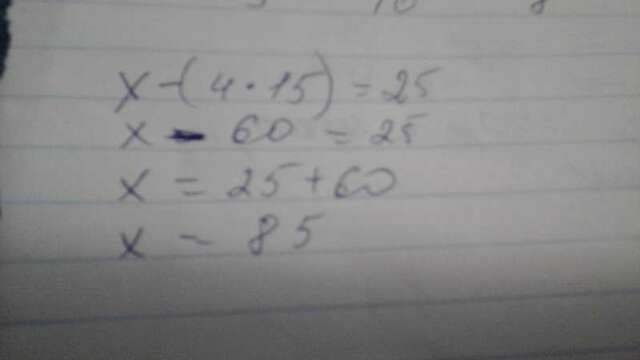 x-(4·15)=25
x-60=25
x=25+60
x-85